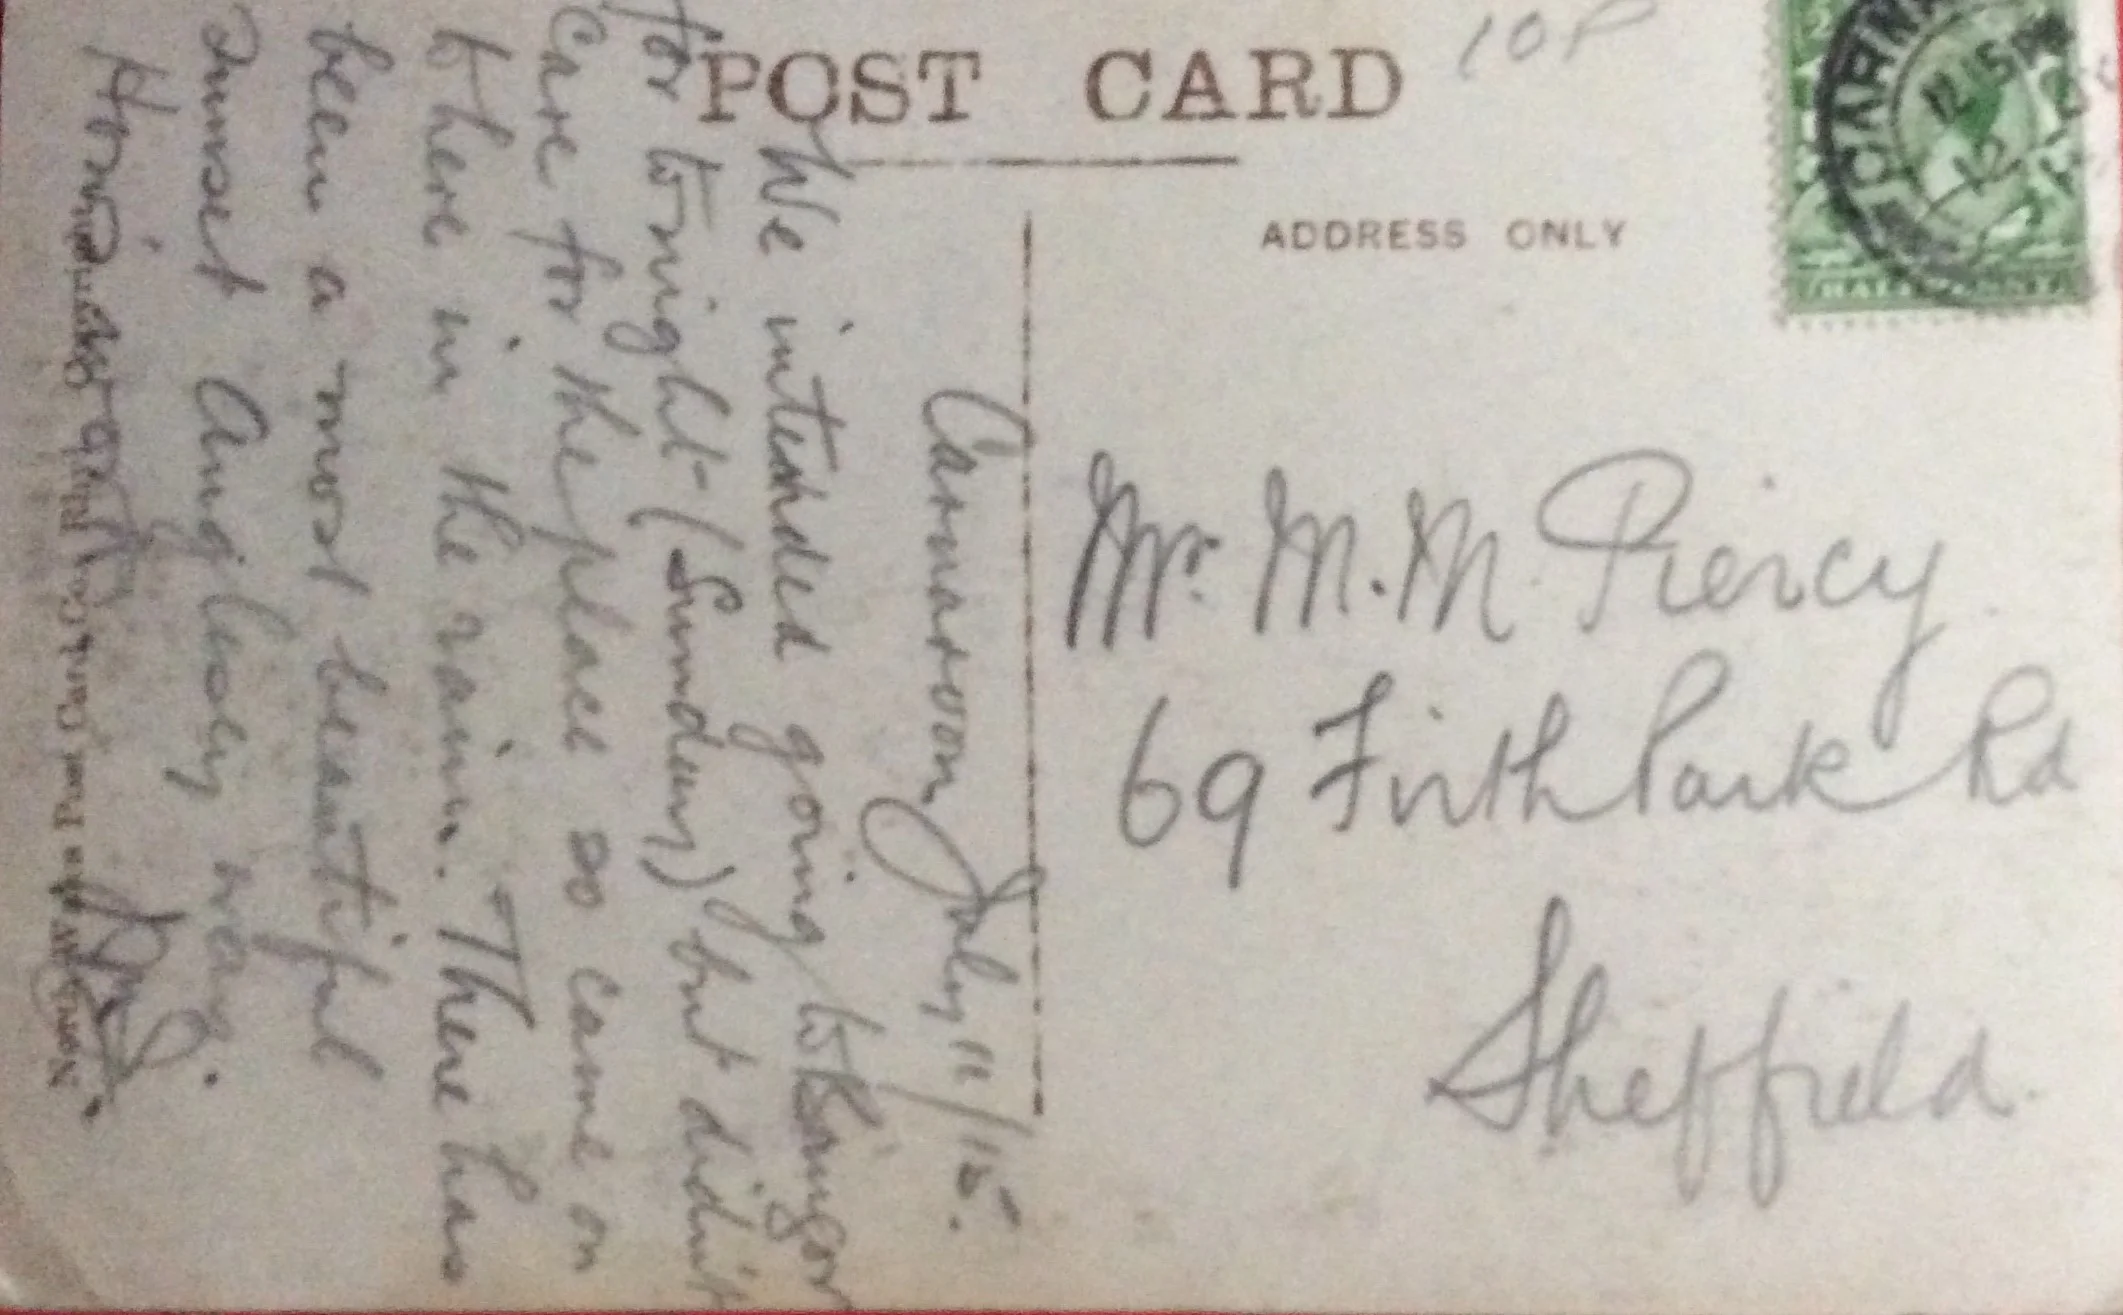 POST CARD
10P
ADDRESS ONLY
CARNA
12.15
HALFPENNY
Mr. M. M. Piercy
69 Firth Park Rd
Sheffield.
Carnarvon July 11/15.
We intended going to Bangor
for to night (Sunday) but didn't
care for the place so came on
to here in the rain. There has
been a most beautiful
sunset Anglesey way.
Post Card Co.